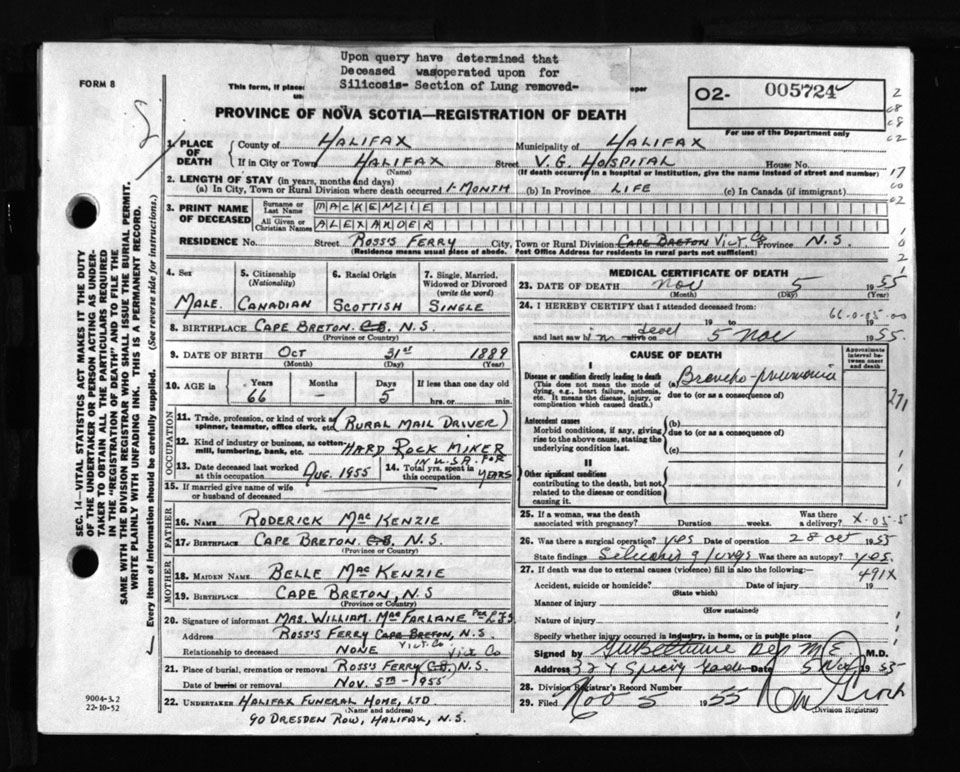 Upon query have determined that
Deceased was operated upon for
Silicosis- Section of Lung removed-
FORM 8
This form, if place
O2- 005724
PROVINCE OF NOVA SCOTIA—REGISTRATION OF DEATH
For use of the Department only
1. PLACE OF DEATH
County of HALIFAX Municipality of HALIFAX
If in City or Town HALIFAX Street V.G. HOSPITAL House No.
(Name) (If death occurred in a hospital or institution, give the name instead of street and number)
2. LENGTH OF STAY (in years, months and days)
(a) In City, Town or Rural Division where death occurred 1-MONTH (b) In Province LIFE (c) In Canada (if immigrant)
3. PRINT NAME OF DECEASED
Surname or Last Name MACKENZIE
All Given or Christian Names ALEXANDER
RESIDENCE No. Street ROSS'S FERRY City, Town or Rural Division CAPE BRETON VICT. CO Province N.S.
(Residence means usual place of abode. Post Office Address for residents in rural parts not sufficient)
4. Sex MALE.
5. Citizenship (Nationality) CANADIAN
6. Racial Origin SCOTTISH
7. Single, Married, Widowed or Divorced (write the word) SINGLE
8. BIRTHPLACE CAPE BRETON. C.B. N.S.
(Province or Country)
9. DATE OF BIRTH OCT 31ST 1889
(Month) (Day) (Year)
10. AGE is Years 66 Months - Days 5 If less than one day old hrs. or min.
OCCUPATION
11. Trade, profession, or kind of work as spinner, teamster, office clerk, etc. (RURAL MAIL DRIVER)
12. Kind of industry or business, as cotton-mill, lumbering, bank, etc. HARD ROCK MINER
IN U.S.A. FOR
13. Date deceased last worked at this occupation AUG. 1955 14. Total yrs. spent in this occupation YEARS
15. If married give name of wife or husband of deceased
FATHER
16. NAME RODERICK MACKENZIE
17. BIRTHPLACE CAPE BRETON C.B. N.S.
(Province or Country)
MOTHER
18. MAIDEN NAME BELLE MACKENZIE
19. BIRTHPLACE CAPE BRETON, N.S
(Province or Country)
20. Signature of informant MRS. WILLIAM. MACFARLANE
Address ROSS'S FERRY CAPE BRETON, N.S.
VICT. CO
Relationship to deceased NONE VICT. CO
21. Place of burial, cremation or removal ROSS'S FERRY C.B. N.S.
Date of burial or removal NOV. 5TH - 1955
22. UNDERTAKER HALIFAX FUNERAL HOME, LTD
(Name and address)
90 DRESDEN ROW, HALIFAX, N.S.
MEDICAL CERTIFICATE OF DEATH
23. DATE OF DEATH Nov 5 1955
(Month) (Day) (Year)
24. I HEREBY CERTIFY that I attended deceased from:
19 to 19
and last saw him alive on dead 5 Nov 1955.
CAUSE OF DEATH
Approximate interval between onset and death
I
Disease or condition directly leading to death
(This does not mean the mode of dying, e.g., heart failure, asthenia, etc. It means the disease, injury, or complication which caused death.)
(a) Broncho-pneumonia
due to (or as a consequence of)
Antecedent causes
Morbid conditions, if any, giving rise to the above cause, stating the underlying condition last.
(b)
due to (or as a consequence of)
(c)
II
Other significant conditions
contributing to the death, but not related to the disease or condition causing it.
25. If a woman, was the death associated with pregnancy? Duration weeks. Was there a delivery?
26. Was there a surgical operation? yes Date of operation 28 Oct 1955
State findings Silicosis of lungs Was there an autopsy? yes.
27. If death was due to external causes (violence) fill in also the following:
491X
Accident, suicide or homicide? Date of injury 19
(State which)
Manner of injury
(How sustained)
Nature of injury
Specify whether injury occurred in industry, in home, or in public place
Signed by M.D.
Address Date 5 Nov 1955
28. Division Registrar's Record Number
29. Filed Nov 5 1955
(Division Registrar)
SEC. 14—VITAL STATISTICS ACT MAKES IT THE DUTY
OF THE UNDERTAKER OR PERSON ACTING AS UNDER-
TAKER TO OBTAIN ALL THE PARTICULARS REQUIRED
IN THE "REGISTRATION OF DEATH" AND TO FILE THE
SAME WITH THE DIVISION REGISTRAR WHO SHALL ISSUE THE BURIAL PERMIT.
WRITE PLAINLY WITH UNFADING INK. THIS IS A PERMANENT RECORD.
Every item of information should be carefully supplied. (See reverse side for instructions.)
9004-3.2
22-10-52